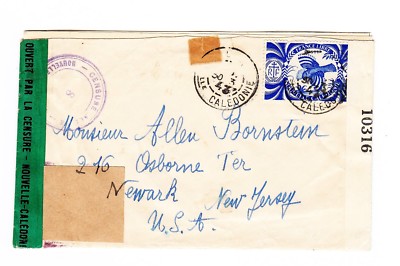 OUVERT PAR LA CENSURE - NOUVELLE-CALÉDONI
CENSURE
NOUVELLE
Nlle CALEDONIE
CALEDONIE
10316
Monsieur Allen Bornstein
216 Osborne Ter
Newark New Jersey
U.S.A.